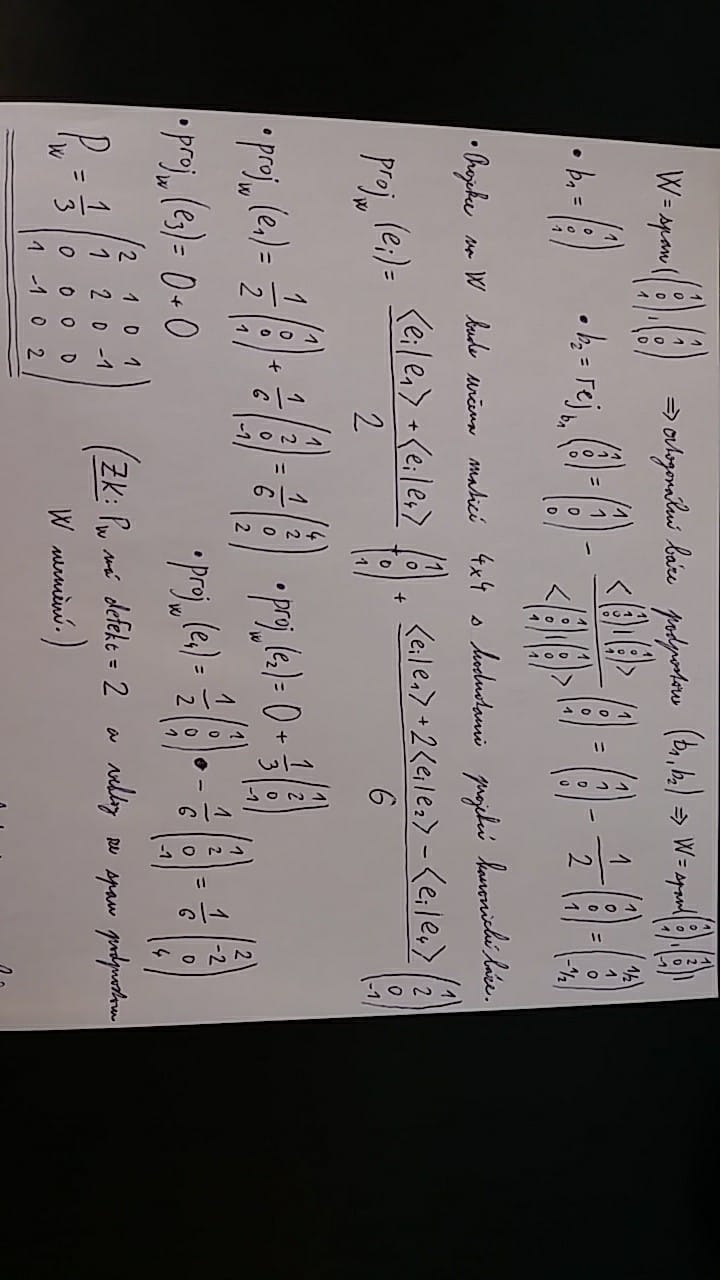 W = span((1 0 0 1), (1 1 0 0)) ⇒ ortogonální báze podprostoru (b₁, b₂) ⇒ W = span((1 0 0 1), (1 2 0 -1))
• b₁ = (1 0 0 1) • b₂ = rej_b₁ (1 1 0 0) = (1 1 0 0) - <(1 1 0 0)|(1 0 0 1)> / <(1 0 0 1)|(1 0 0 1)> (1 0 0 1) = (1 1 0 0) - 1/2 (1 0 0 1) = (1/2 1 0 -1/2)
• Projekce na W bude určena maticí 4x4 s hodnotami projekcí kanonické báze.
proj_W (eᵢ) = <eᵢ|e₁> + <eᵢ|e₄> / 2 (1 0 0 1) + <eᵢ|e₁> + 2<eᵢ|e₂> - <eᵢ|e₄> / 6 (1 2 0 -1)
• proj_W (e₁) = 1/2 (1 0 0 1) + 1/6 (1 2 0 -1) = 1/6 (4 2 0 2) • proj_W (e₂) = 0 + 1/3 (1 2 0 -1)
• proj_W (e₃) = 0 + 0 • proj_W (e₄) = 1/2 (1 0 0 1) - 1/6 (1 2 0 -1) = 1/6 (2 -2 0 4)
P_W = 1/3 (2 1 0 1
1 2 0 -1
0 0 0 0
1 -1 0 2)
(ZK: P_W má defekt = 2 a vektory ze span podprostoru
W nemění.)